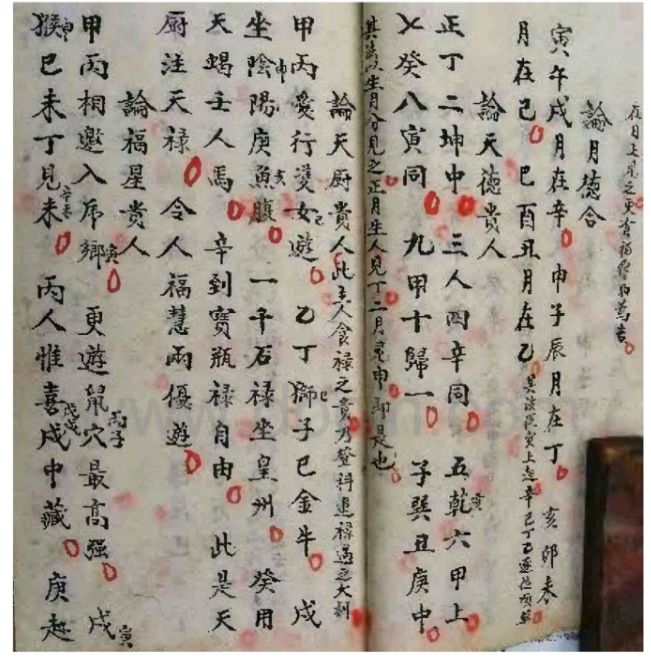 在日上見之更
論月德合
寅午戌月在辛 申子辰月在丁 亥卯未
月在己 巳酉丑月在乙
論天德貴人
正丁二坤中 三人四辛同 五乾六甲上
癸八寅同 九甲十歸一 子巽丑庚中
其法以生月分見之正月生人見丁二月見申即是也
論天廚貴人 此主人食祿之貴
甲丙愛行雙女遊 乙丁獅子巳金牛 戊
坐陰陽庚魚腹 一千石祿坐皇州 癸用
天蝎壬人馬 辛到寶瓶祿自由 此是天
厨注天禄 令人福慧兩優遊
論福星貴人
甲丙相邀入虎鄉 更遊鼠穴最高强 戌
猴巳未丁見未 丙人惟喜戌中藏 庚赶